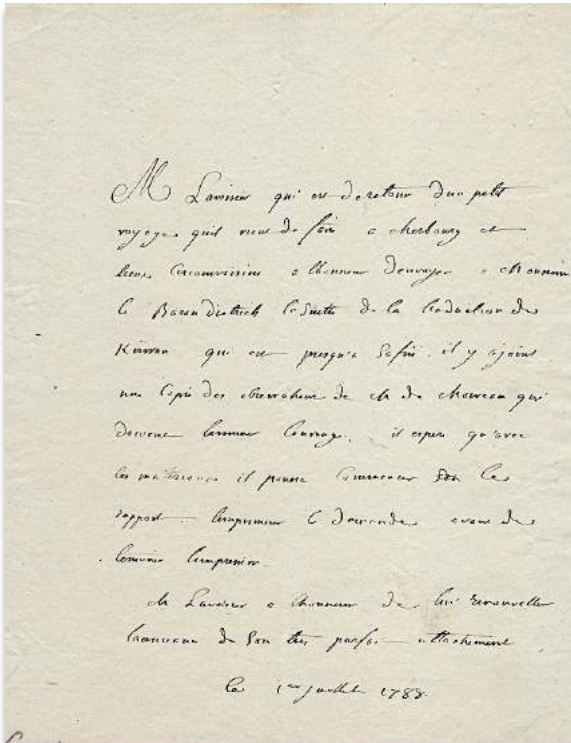 M Lavoisier qui est de retour d'un petit
voyage quil vient de faire a cherbourg et
lieux circonvoisins a lhonneur denvoyer a Monsieur
le Baron dietrich la Suitte de la traduction de
Kirwan qui est presqu'a Sa fin. il y a joint
une Copie des observations de M de Morveau qui
doivent terminer louvrage. il espere qu'avec
les materiaux il pourra Commencer le
rapport limprimeur le demande avant de
limpression.
M Lavoisier a lhonneur de lui renouveller
lassurance de Son très parfait attachement
le 1er juillet 1788.